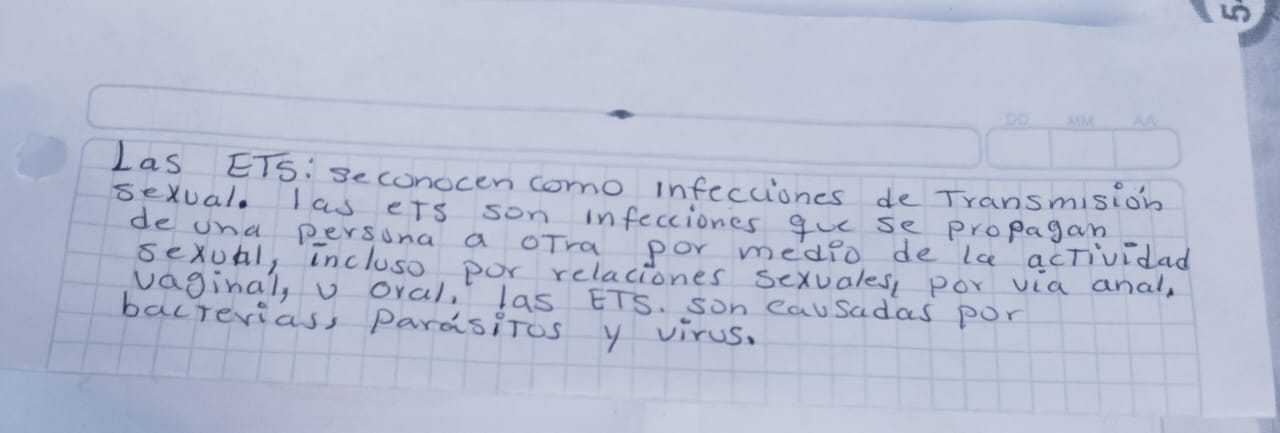 5
DD MM AA
Las ETS: se conocen como infecciones de Transmisión
sexual. las ETS son infecciones que se propagan
de una persona a otra por medio de la actividad
sexual, incluso por relaciones sexuales, por via anal,
vaginal, u oral. las ETS. son causadas por
bacterias, parásitos y virus.